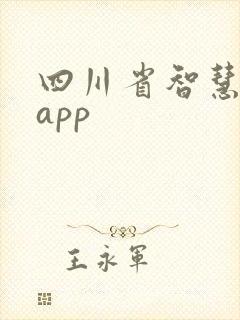 四川省智慧
app
王永军